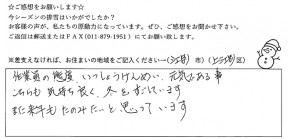 ☆ご感想をお願いします☆
今シーズンの排雪はいかがでしたか？
お客様の声が、私たちの原動力になっています。ぜひ、ご感想をお聞かせ下さい。
ご返信は郵送またはFAX(011-879-1951)にてお願い致します。
※差支えなければ、お住まいの地域をご記入ください(江別 市)( 区)
作業員の態度、いっしょうけんめい、元気である事
こちらも気持ち良く、冬をすごせています
また来年もたのみたいと思っています